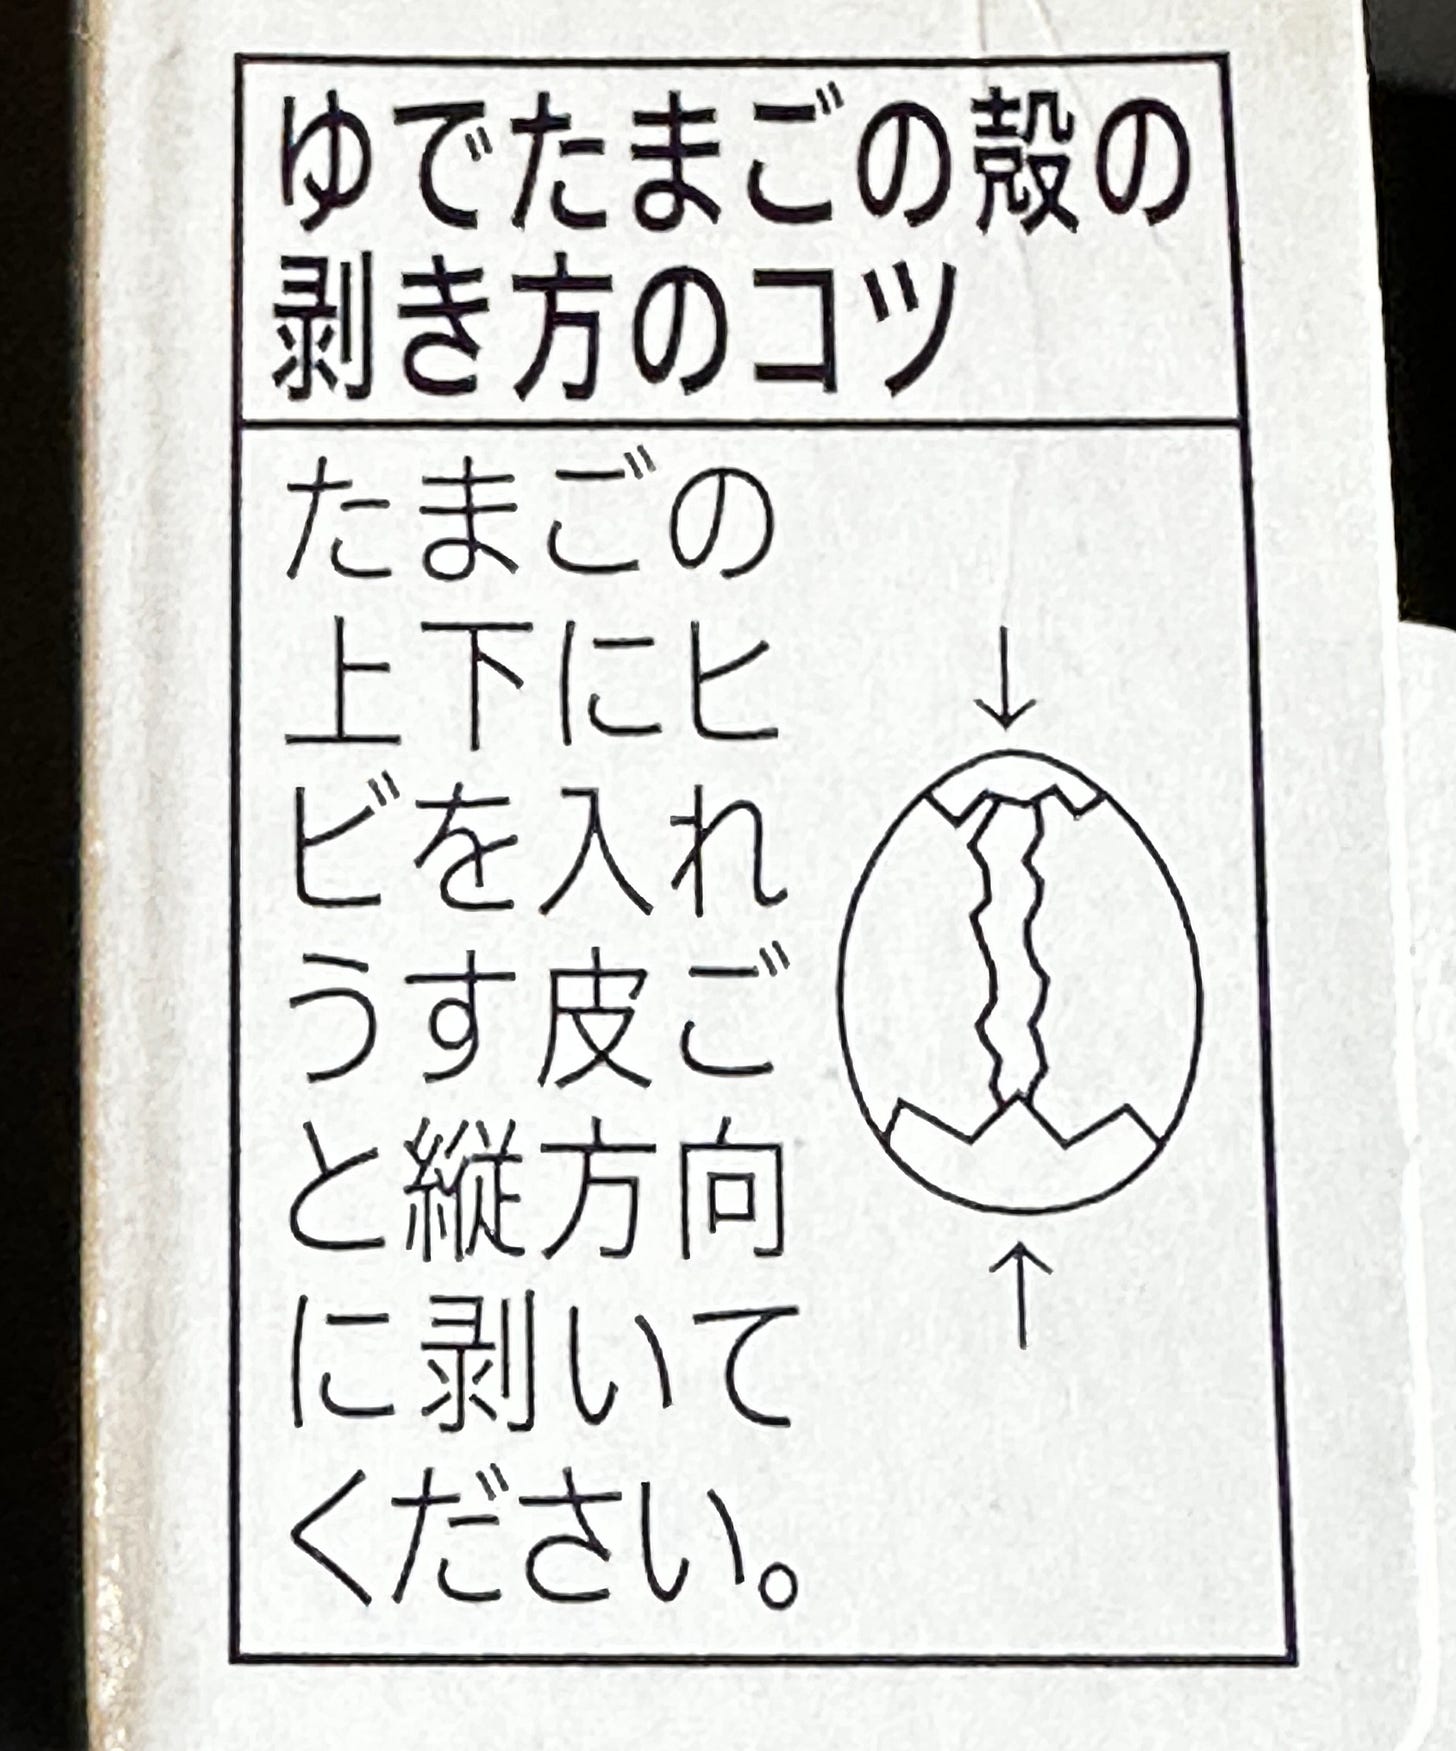 ゆでたまごの殻の
剥き方のコツ
たまごの
上下にヒ
ビを入れ
うす皮ご
と縦方向
に剥いて
ください。